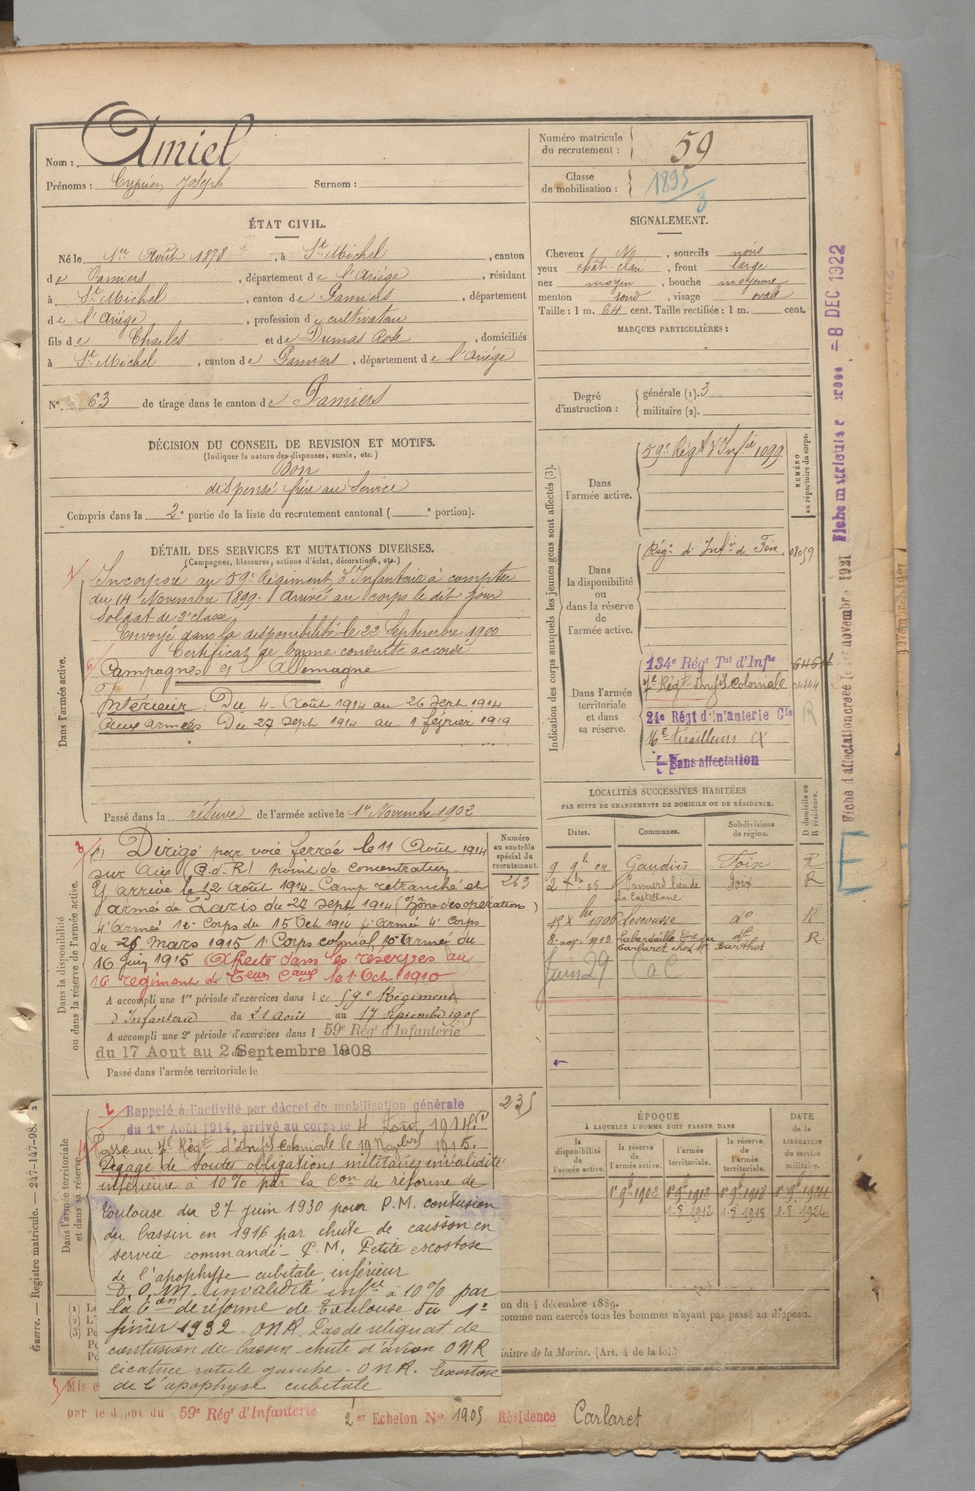 Nom : Amiel
Prénoms : Cyprien Joseph Surnom :
Numéro matricule du recrutement : 59
Classe de mobilisation : 1895/3
ÉTAT CIVIL.
Né le 1er Août 1878, à St Michel, canton
de Pamiers, département de l'Ariége, résidant
à St Michel, canton de Pamiers, département
de l'Ariége, profession de cultivateur
fils de Charles et de Dumas Rose, domiciliés
à St Michel, canton de Pamiers, département de l'Ariége
N° 63 de tirage dans le canton de Pamiers
SIGNALEMENT.
Cheveux No, sourcils noirs
yeux chât. clair, front large
nez moyen, bouche moyenne
menton rond, visage ovale
Taille : 1 m. 64 cent. Taille rectifiée : 1 m. cent.
MARQUES PARTICULIÈRES :
Degré d'instruction : générale (1). 3
militaire (2).
DÉCISION DU CONSEIL DE REVISION ET MOTIFS.
(Indiquer la nature des dispenses, sursis, etc.)
Bon
dispensé frère au Service
Compris dans la 2e partie de la liste du recrutement cantonal ( e portion).
DÉTAIL DES SERVICES ET MUTATIONS DIVERSES.
(Campagnes, blessures, actions d'éclat, décorations, etc.)
Dans l'armée active.
Incorporé au 59e Régiment d'Infanterie à compter
du 14 Novembre 1899. Arrivé au corps le dit jour
Soldat de 2e classe
Envoyé dans la disponibilité le 22 Septembre 1900
Certificat de bonne conduite accordé
Campagnes Allemagne
Intérieur : Du 4 Août 1914 au 26 Sept 1914
aux armées Du 27 Sept 1914 au 1 février 1919
Passé dans la réserve de l'armée active le 1er Novembre 1902
Dans la disponibilité ou dans la réserve de l'armée active.
Numéro au contrôle spécial du recrutement.
263
Dirigé par voie ferrée le 11 Août 1914
point de concentration
Y arrive le 12 Août 1914 - Camp retranché et
armée de Paris du 27 Sept 1914 (Zône des opérations)
4e Armée 12e Corps du 15 Oct 1914 4e Armée 4e Corps
du 26 Mars 1915 1er Corps colonial 10e armée du
16 Juin 1915 Affecté dans les réserves au
16 régiment de Tirailleurs le 1 Oct 1910
A accompli une 1re période d'exercices dans le 59e Régiment
d'Infanterie du 21 Août au 17 Septembre 1905
A accompli une 2e période d'exercices dans l 59e Rég d'Infanterie
du 17 Aout au 2 Septembre 1908
Passé dans l'armée territoriale le
Dans l'armée territoriale et dans sa réserve.
235
Rappelé à l'activité par décret de mobilisation générale
du 1er Août 1914, arrivé au corps le 4 Août 1914.
Passé au 7e Régt d'Infie coloniale le 19 1915.
Dégagé de toutes obligations militaires invalidité
inférieure à 10% par la Con de réforme de
Toulouse du 27 juin 1930 pour P.M. contusion
du bassin en 1916 par chute de caisson en
service commandé - P.M. Petite exostose
de l'apophyse cubitale inférieur
D.O.M. invalidité infre à 10% par
la Con de réforme de Toulouse du 1er
février 1932 - ONR. Pas de reliquat de
contusion du bassin - chute d'avion ONR
cicatrice rotule gauche - ONR. Exostose
de l'apophyse cubitale
Indication des corps auxquels les jeunes gens sont affectés (3).
NUMÉRO au répertoire du corps.
Dans l'armée active.
59e Régt d'Infie 1099
Dans la disponibilité ou dans la réserve de l'armée active.
Régt d'Infie de Foix. 08059
Dans l'armée territoriale et dans sa réserve.
134e Régt Tal d'Infie
7e Régt Infie Coloniale
24e Régt d'Infanterie Cle
16e Tirailleurs
Sans affectation
LOCALITÉS SUCCESSIVES HABITÉES
PAR SUITE DE CHANGEMENTS DE DOMICILE OU DE RÉSIDENCE.
Dates. Communes. Subdivisions de région. D domicile ou R résidence.
Gaudiès Foix R
La Castellane Foix R
1906 Lescousse do R
1912 R
Juin 29
ÉPOQUE
À LAQUELLE L'HOMME DOIT PASSER DANS
DATE de la LIBÉRATION du service militaire.
la disponibilité de l'armée active. la réserve de l'armée active. l'armée territoriale. la réserve de l'armée territoriale.
1er 9bre 1902 1er 9bre 1912 1er 9bre 1918
1.8 1912 1.8 1918 1.8 1924
on du 4 décembre 1889.
comme non exercés tous les hommes n'ayant pas passé au drapeau.
inistre de la Marine. (Art. 4 de la loi.)
par le dépôt du 59e Régt d'Infanterie 2e Echelon N° 1905 Résidence Carlaret
Guerre. — Registre matricule. — 247-147-98.
Fiche matricule -8 DEC 1922
Fiche d'affectation créée le novembre 1921